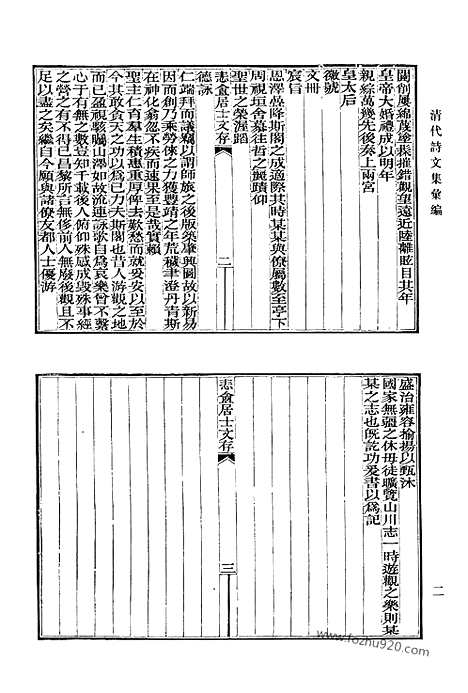 清代詩文集彙編
闢刱屢綿歲禩長摧錯觀望遠近陸離眩目其年
皇帝大婚禮成以明年
親綜萬幾先後奏上兩宮
皇太后
徽號
文冊
宸旨
恩澤疊降斯閣之成適際其時某某與僚屬數至亭下
周視垣舍慕往哲之軌蹟仰
聖世之榮渥蹈
悲盦居士文存
二
德詠
仁端拜而議竊以謂師旅之後版築康興圖故以新易
因而創乃乘勞倈之力獲豐靖之年荒穢聿澄丹青斯
在神化翁忽不疾而速果至是哉實賴
聖主仁育羣生積惠重厚俾去歎愁而就妥安以至於
今其敢貪天之功以爲已力夫斯閣也昔人游觀之地
而已盈視駭矚山澤如故流連詠歌自爲哀樂曾不繫
心于有無之數豈知千載後人俯仰殊感成毀殊事經
之營之有不得已昌黎所言無侈前人無廢後觀且不
足以盡之矣繼自今願與諸僚友都人士優游
盛治雍容揄揚以甄沐
國家無疆之休毋徒曠覽山川志一時遊觀之樂則某
某之志也旣訖功爰書以爲記
悲盦居士文存
三
二
www.fozhu920.com